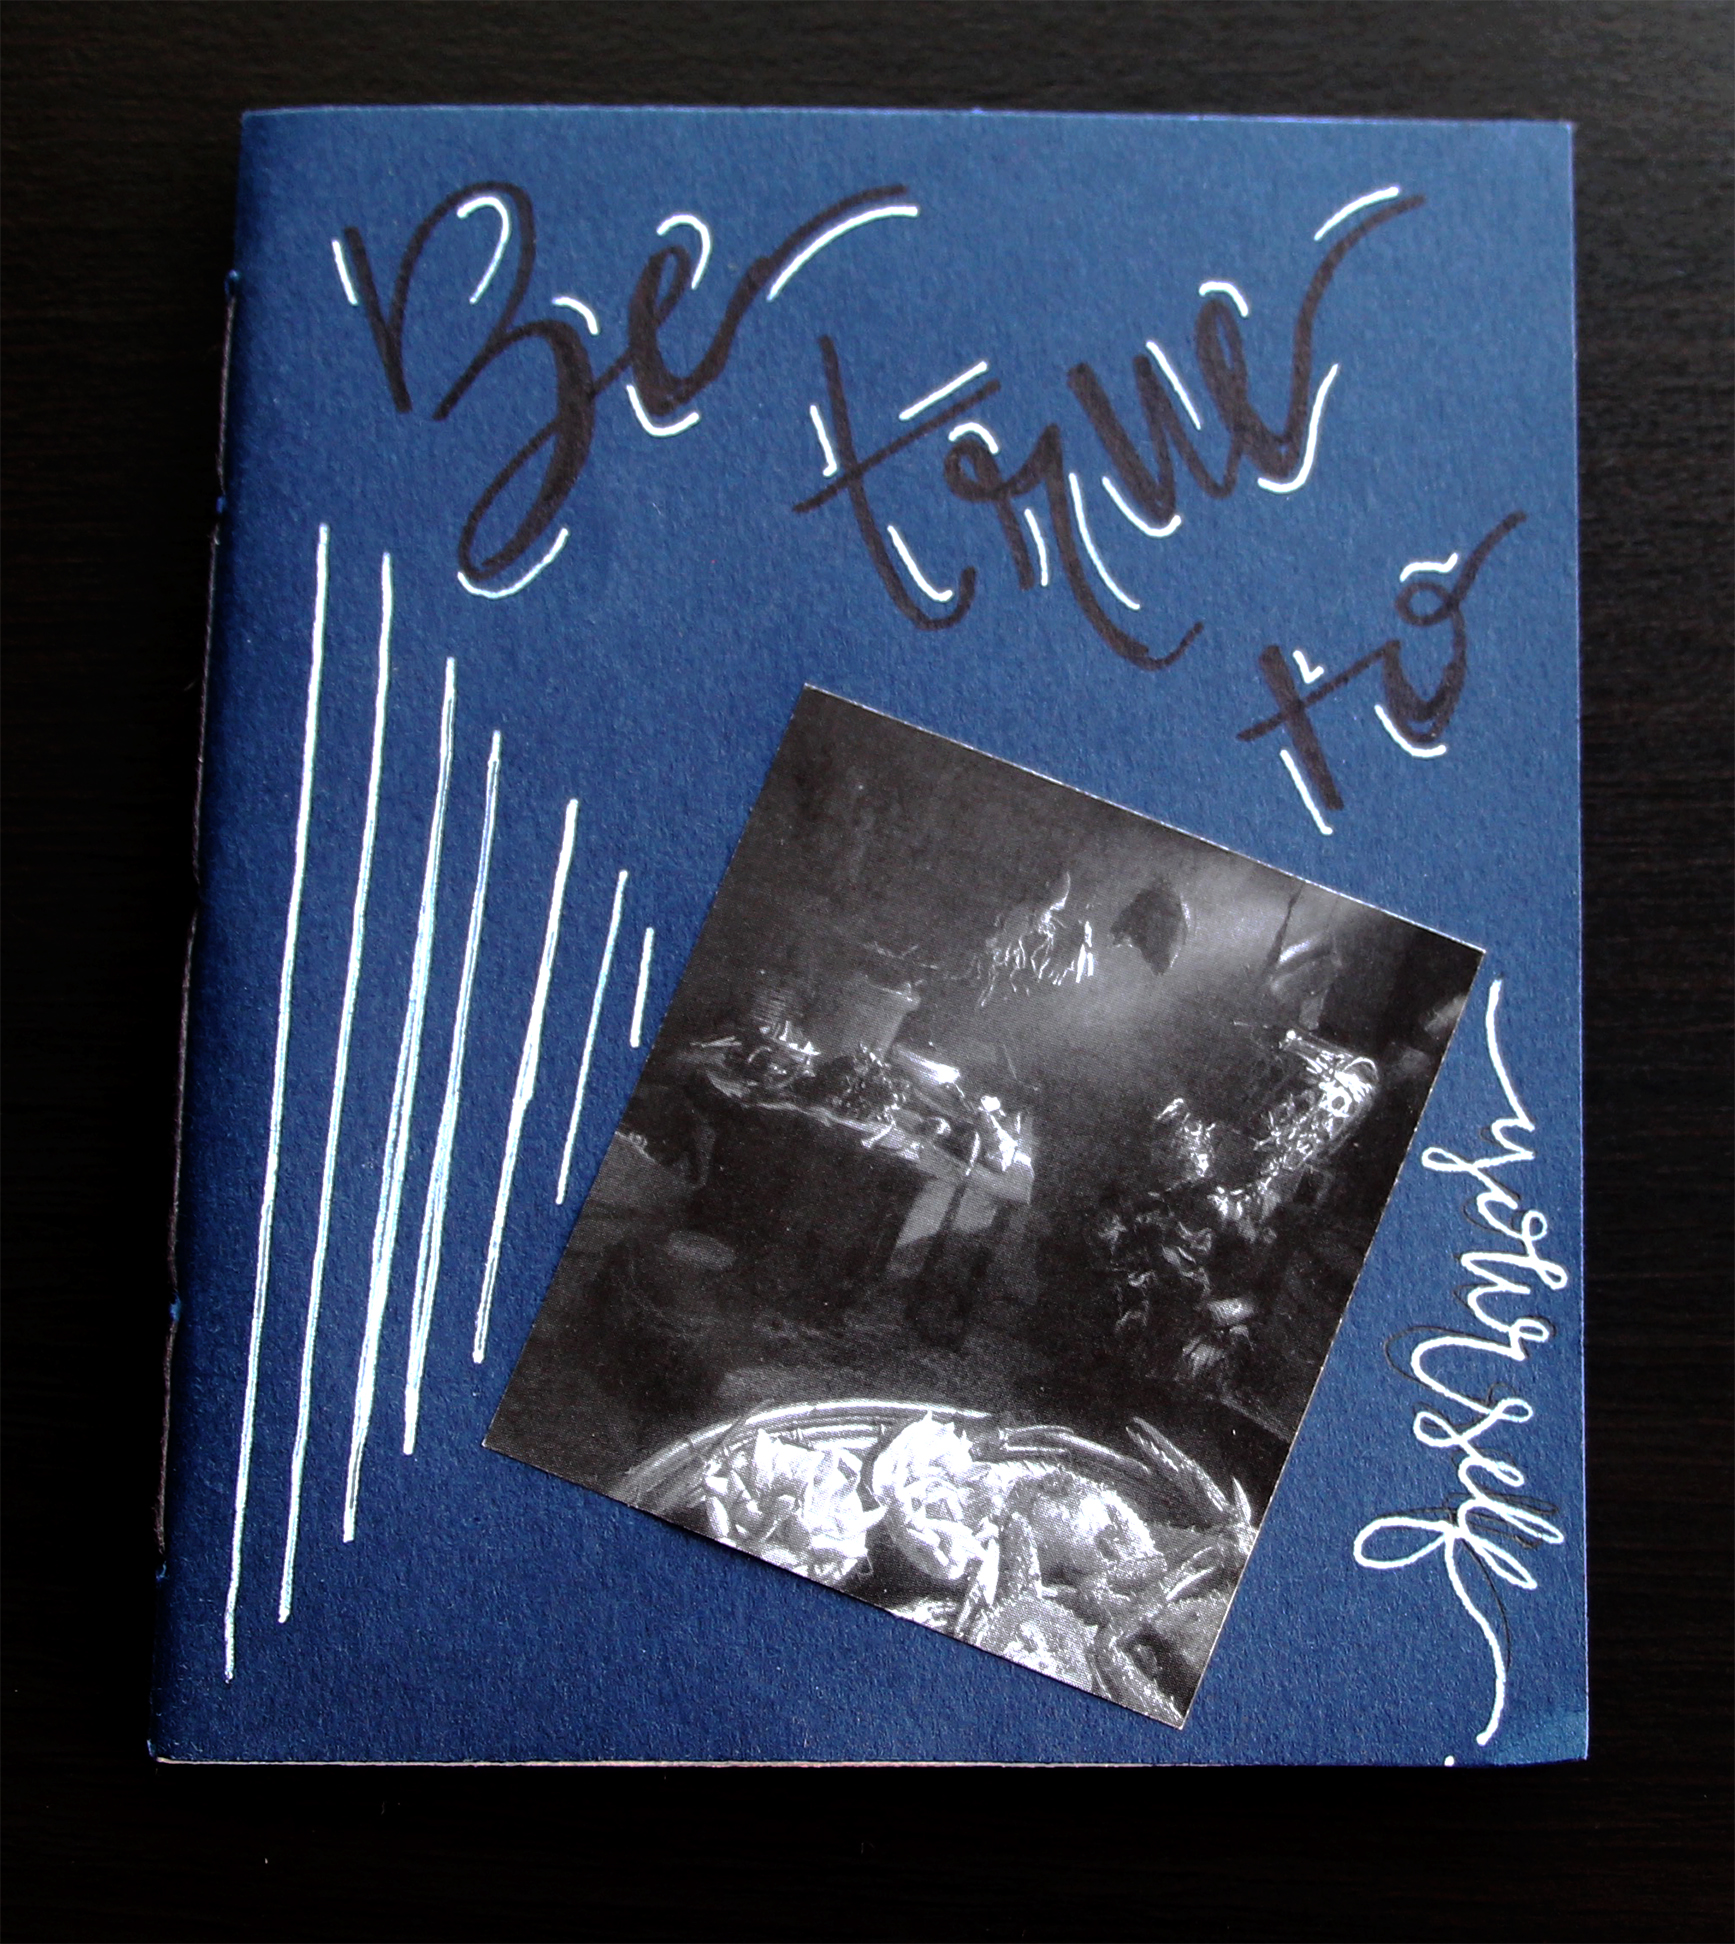 Be
true
to
yourself